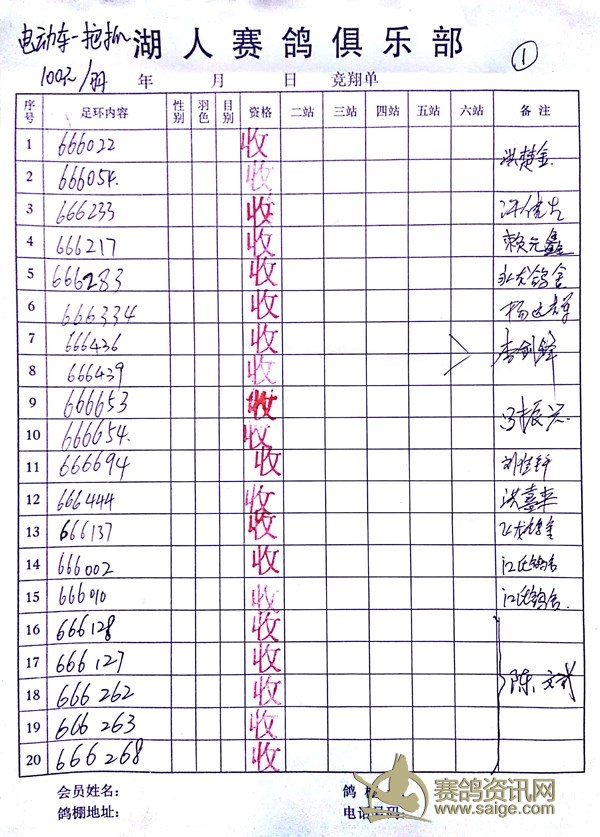 电动车一拖
湖人赛鸽俱乐部
①
100元/羽 年 月 日 竞翔单
序号 足环内容 性别 羽色 目别 资格 二站 三站 四站 五站 六站 备注
1 666022 收 洪楚金
2 666054. 收
3 666233 收
4 666217 收 赖元鑫
5 666283 收
6 666334 收
7 666436 收 李剑锋
8 666439 收
9 666653 收 冯振兴
10 666654. 收
11 666694 收
12 666444 收 洪嘉来
13 666137 收
14 666002 收 江氏鸽舍
15 666010 收 江氏鸽舍.
16 666128 收
17 666127 收
18 666262 收 陈文武
19 666263 收
20 666268 收
会员姓名: 鸽
鸽棚地址: 电话号码:
赛鸽资讯网
www.saige.com